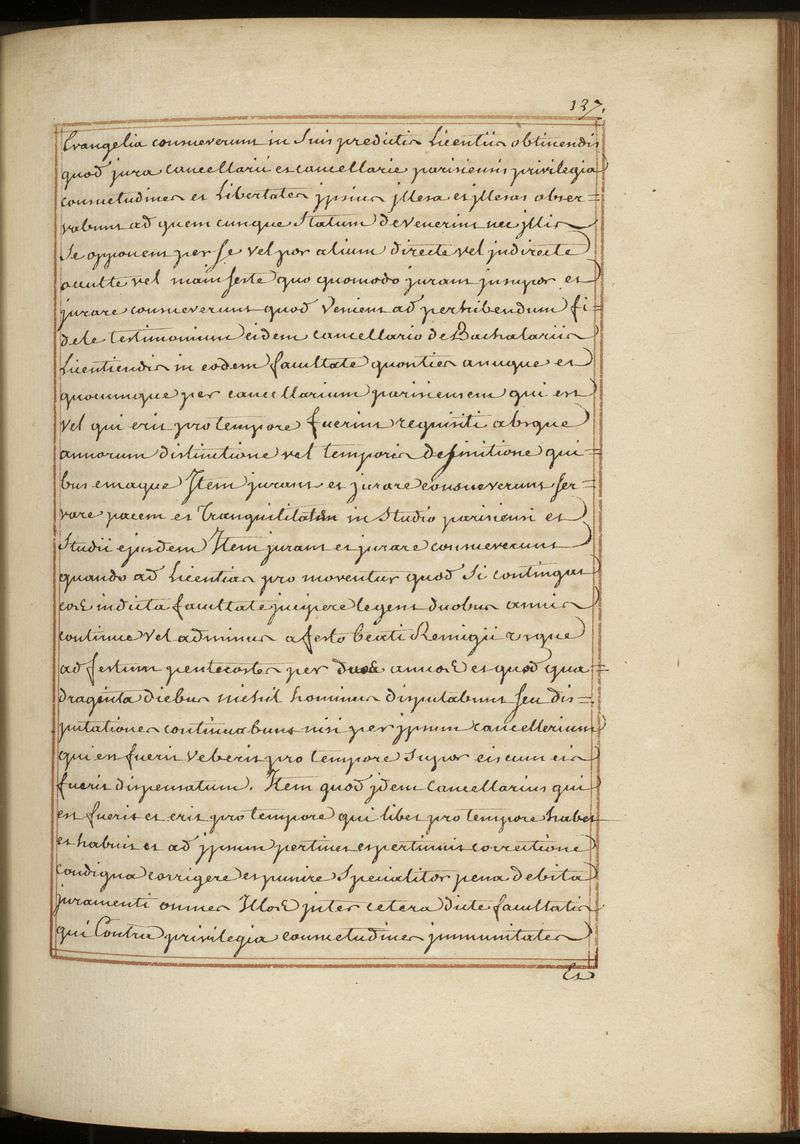 137.
Evangelia consueverunt in Suis predictis Licentiis obtinendis
quod jura cancellarii et cancellarie parisiensis privilegia
consuetudines et Libertates ipsius illesa et illesas obser =
vabunt ad quem cunque Statum devenerint nec illis
Se opponent per se vel per alium directe vel indirecte
occulte vel manifeste quo quomodo jurant insuper et
jurare consueverunt quod Venient ad perhibendum fi
dele testimonium eidem cancellario de Bachalariis
Licentiendis in eodem facultate quonties anuque et
quocumque per cancellarium parisiensem qui est
vel qui erit pro tempore fuerint requisiti absque
annorum distinctione vel temporis definitione qui =
bus emaque Item jurant et jurare consueverunt ser =
vare pacem et tranquilitatem in Studio parisiensi et
Studii ejusdem Item jurant et jurare consueverunt
quando ad Licentias pro moventur quod Si contingat
eos in dicta facultate incipere legent duobus annis
continue vel ad minus a festo beati Remigii usque
ad festum pentecostes per duos annos et quod qua =
draginta diebus nichil hominus disputabunt seu dis =
putationes continuabunt nisi per ipsum cancellerium
qui est fuerit vel erit pro tempore Super eis cum eis
fuerit dispensatum. Item quod idem Cancellarius qui
est fuerit et erit pro tempore qui libet pro tempore habet
et habuit et ad ipsum pertinet et pertinuit correctione
condigna corrigere et punire Specialiter pena debita
juramenti omnes Illos inter cetera dicte facultatis
qui Contra privilegia consuetudines immunitates
Et